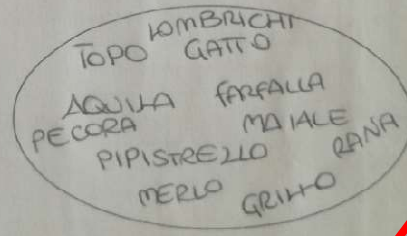 LOMBRICHI
TOPO GATTO
AQUILA FARFALLA
PECORA MAIALE
PIPISTRELLO RANA
MERLO GRILLO